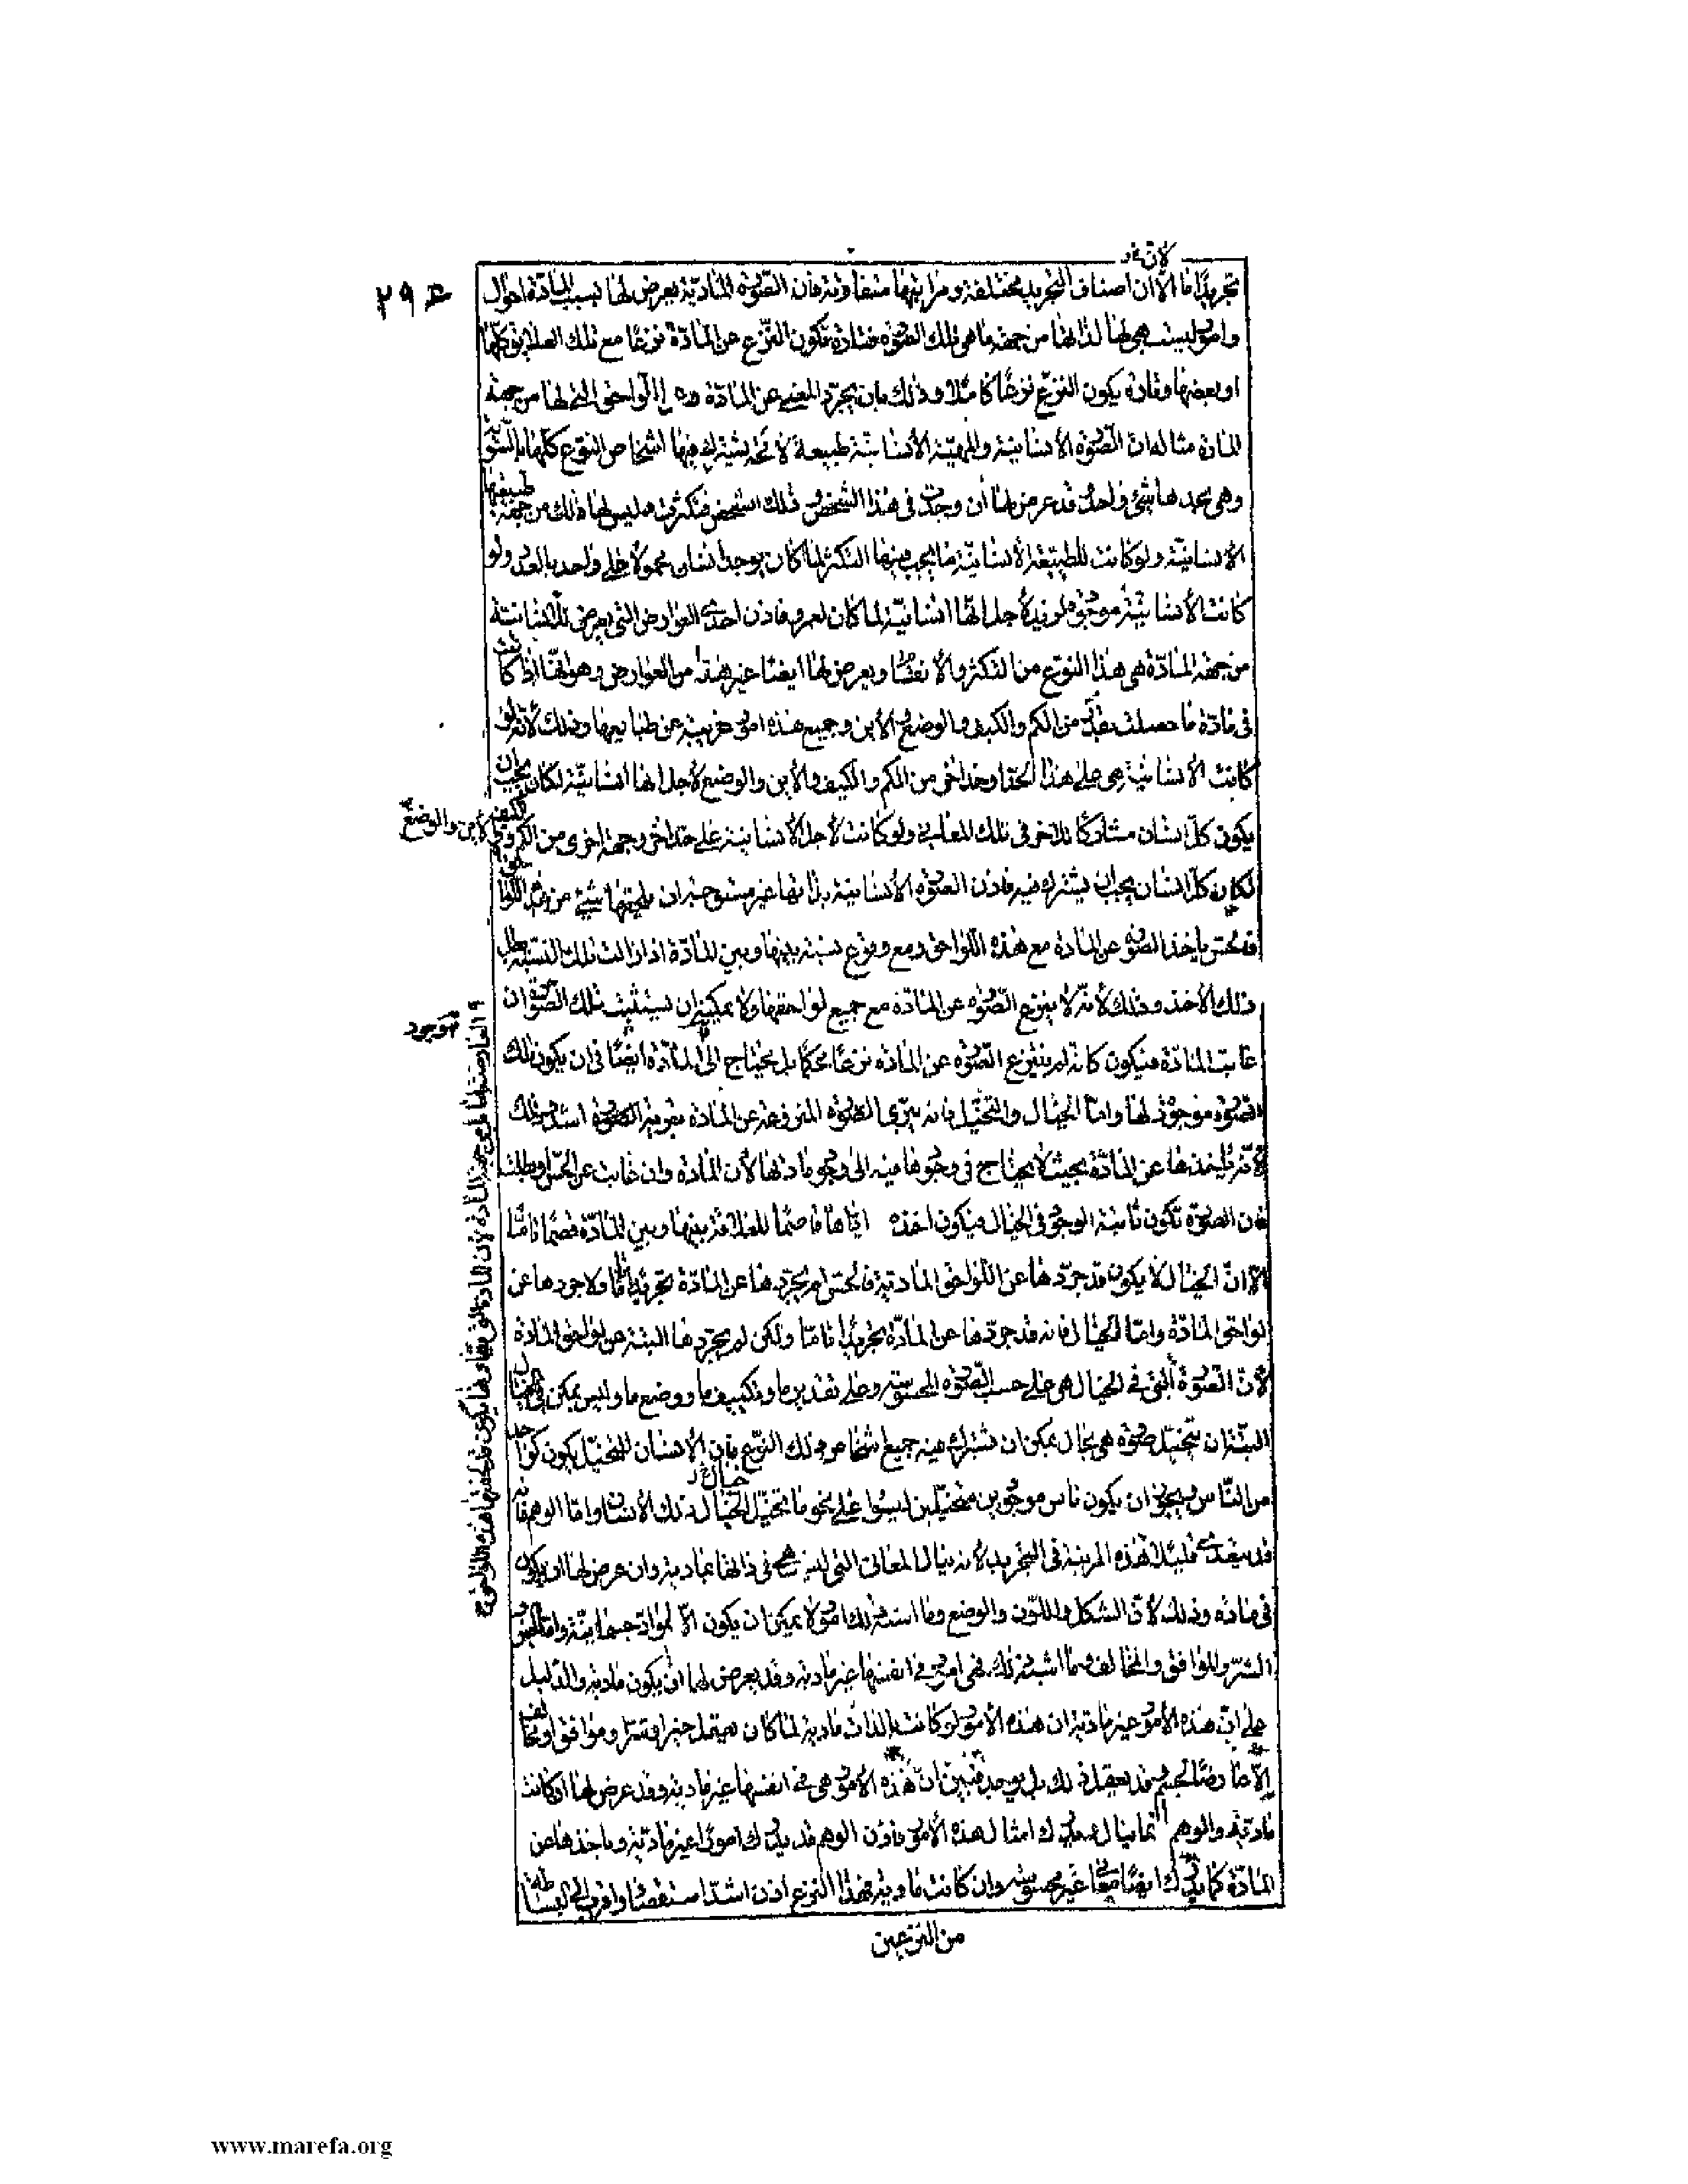 لان خ د
٢٩٤
تجريدًا ما الّا ان اصناف التجريد مختلفة ومراتبها متفاوتة فان الصّورة المادّية يعرض لها بسبب المادّة احوال
وامور ليست هي لها لذاتها من جهة ما هي تلك الصورة فتارة تكون النّزع عن المادّة نزعًا مع تلك العلايق كلّها
او بعضها وتارة يكون النزع نزعًا كاملًا وذلك بان يجرّد المعنى عن المادّة وعن اللواحق التي لها من جهة
المادة مثاله ان الصّورة الأنسانية والمهيّة الأنسانيّة طبيعة لا محة يشترك فيها اشخاص النوع كلّها بالسّوية
وهي بحدها شئ واحد وقد عرض لها أن وجدت في هذا الشخص وذلك الشخص فتكثرت وليس لها ذلك من جهة طبيعتها
الأنسانيّة ولو كانت للطبيعة الأنسانيّة ما يجب فيها التكثر لما كان يوجد انسان محمولًا على واحد بالعدد ولو
كانت الأنسانيّة موجودة لزيد لأجل انّها انسانيّة لما كان لعمرو فاذن احدى العوارض التي يعرض للأنسانيّة
من جهة المادّة هي هذا النوع من التكثر والأنقسام ويعرض لها ايضًا غير هذا من العوارض وهو انّها اذا كانت
في مادّة ما حصلت بقدر من الكم والكيف والوضع والأين وجميع هذه امور غريبة عن طبايعها وذلك لأنّه لو
كانت الأنسانية هي على هذا الحد او حد اخر من الكم والكيف والأين والوضع لأجل انها انسانيّة لكان يجب ان
يكون كلّ انسان مشاركًا للآخر في تلك المعاني ولو كانت لأجل الأنسانية على حد اخر وجهة اخرى من الكم والكيف والأين والوضع
لكان كلّ انسان يجب ان يشترك فيه فاذن الصورة الأنسانية بذاتها غير مستوجبة ان يلحقها شئ من هذه اللواحق
فالحس يأخذ الصورة عن المادة مع هذه اللواحق ومع وقوع نسبة بينها وبين المادّة اذا زالت تلك النسبة بطل
ذلك الأخذ وذلك لأنّه لا ينزع الصّورة عن المادّة مع جميع لواحقها ولا يمكنه ان يستثبت تلك الصّورة ان
غابت المادّة فيكون كانه لم ينتزع الصّورة عن المادة نزعًا محكمًا بل يحتاج الى المادّة ايضًا في ان يكون تلك
موجود
الصورة موجودة لها وامّا الخيال والتخيّل فانه يبرّي الصورة المنزوعة عن المادة تبرية اشد وذلك
لأنّه يأخذها عن المادّة بحيث لا يحتاج في وجودها فيه الى وجود مادتها لأن المادة وان غابت عن الحسّ او بطلت
فان الصورة تكون ثابتة الوجود في الخيال فيكون اخذه ايّاها قاصمًا للعلاقة بينها وبين المادّة قصمًا تامًّا
الّا انّ الخيال لا يكون قد جرّدها عن اللواحق المادية فالحس لم يجرّدها عن المادّة تجريدًا تامًّا ولا جردها عن
لواحق المادّة وامّا الخيال فانه قد جرّدها عن المادّة تجريدًا تامًّا ولكن لم يجرّدها البتة عن لواحق المادّة
لأنّ الصّورة التي في الخيال هي على حسب الصّورة المحسوسة وعلى تقدير ما وتكييف ما ووضع ما وليس يمكن في الخيال
البتّة ان يتخيّل صورة هي بحال يمكن ان يشترك فيه جميع اشخاص ذلك النّوع فان الأنسان المتخيّل يكون كواحد
من النّاس ويجوز ان يكون ناس موجودين متخيّلين ليسوا على نحو ما تخيّل الخيال ذلك الأنسان وامّا الوهم فانه
قد يتعدى قليلًا هذه المرتبة في التجريد لأنه ينال المعاني التي ليست هي في ذاتها بمادية وان عرض لها ان يكون
في مادة وذلك لأنّ الشكل واللّون والوضع وما اشبه ذلك امور لا يمكن ان يكون الّا لموادّ جسمانيّة وامّا الخير و
الشّر والموافق والمخالف وما اشبه ذلك فهي امور في انفسها غير مادية وقد يعرض لها ان يكون مادية والدّليل
على انّ هذه الأمور غير مادّية ان هذه الأمور لو كانت بالذات مادية لما كان يعقل خير او شر وموافق او مخالف
الّا عارضًا لجسم وقد يعقل ذلك بل يوجد فبيّن انّ هذه الأمور هي في انفسها غير مادية وقد عرض لها ان كانت
مادّية والوهم انما ينال ويدرك امثال هذه الأمور فاذن الوهم قد يدرك امورًا غير مادّية ويأخذها عن
المادّة كما يدرك ايضًا معاني غير محسوسة وان كانت مادية فهذا النزع اذن اشدّ استقصاء واقرب الى البساطة
من النزعين
www.marefa.org